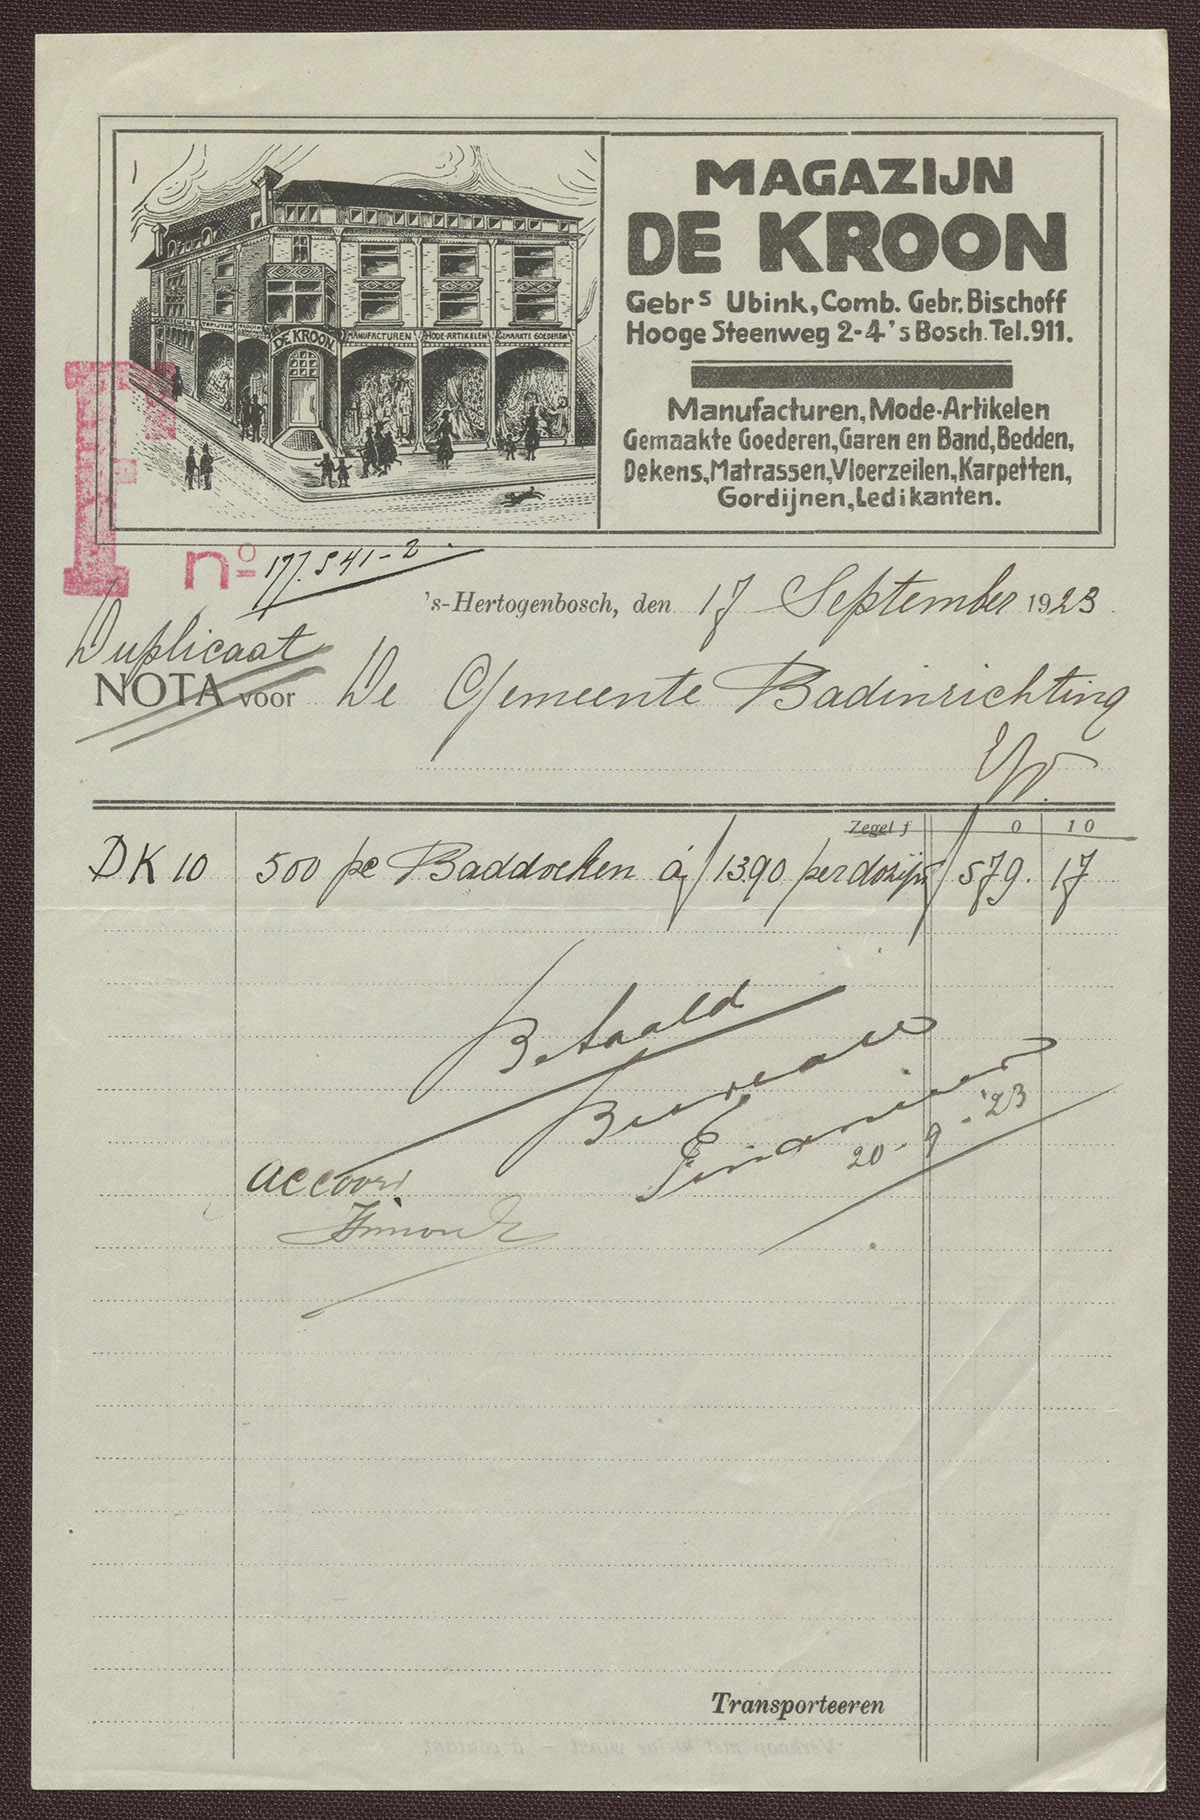 MAGAZIJN
DE KROON
Gebrs Ubink, Comb. Gebr. Bischoff
Hooge Steenweg 2-4 's Bosch. Tel. 911.
Manufacturen, Mode-Artikelen
Gemaakte Goederen, Garen en Band, Bedden,
Dekens, Matrassen, Vloerzeilen, Karpetten,
Gordijnen, Ledikanten.
TAPIJTEN
DE KROON
MANUFACTUREN
MODE-ARTIKELEN
GEMAAKTE GOEDEREN
F
no 177.541-2
's-Hertogenbosch, den 17 September 1923
Duplicaat
NOTA voor De Gemeente Badinrichting
Zegel f 0 10
DK 10 500 pc Baddoeken á f 13.90 per dozijn f 579. 17
Betaald
Bureau
Financiën
20-9-'23
accoord
Transporteeren